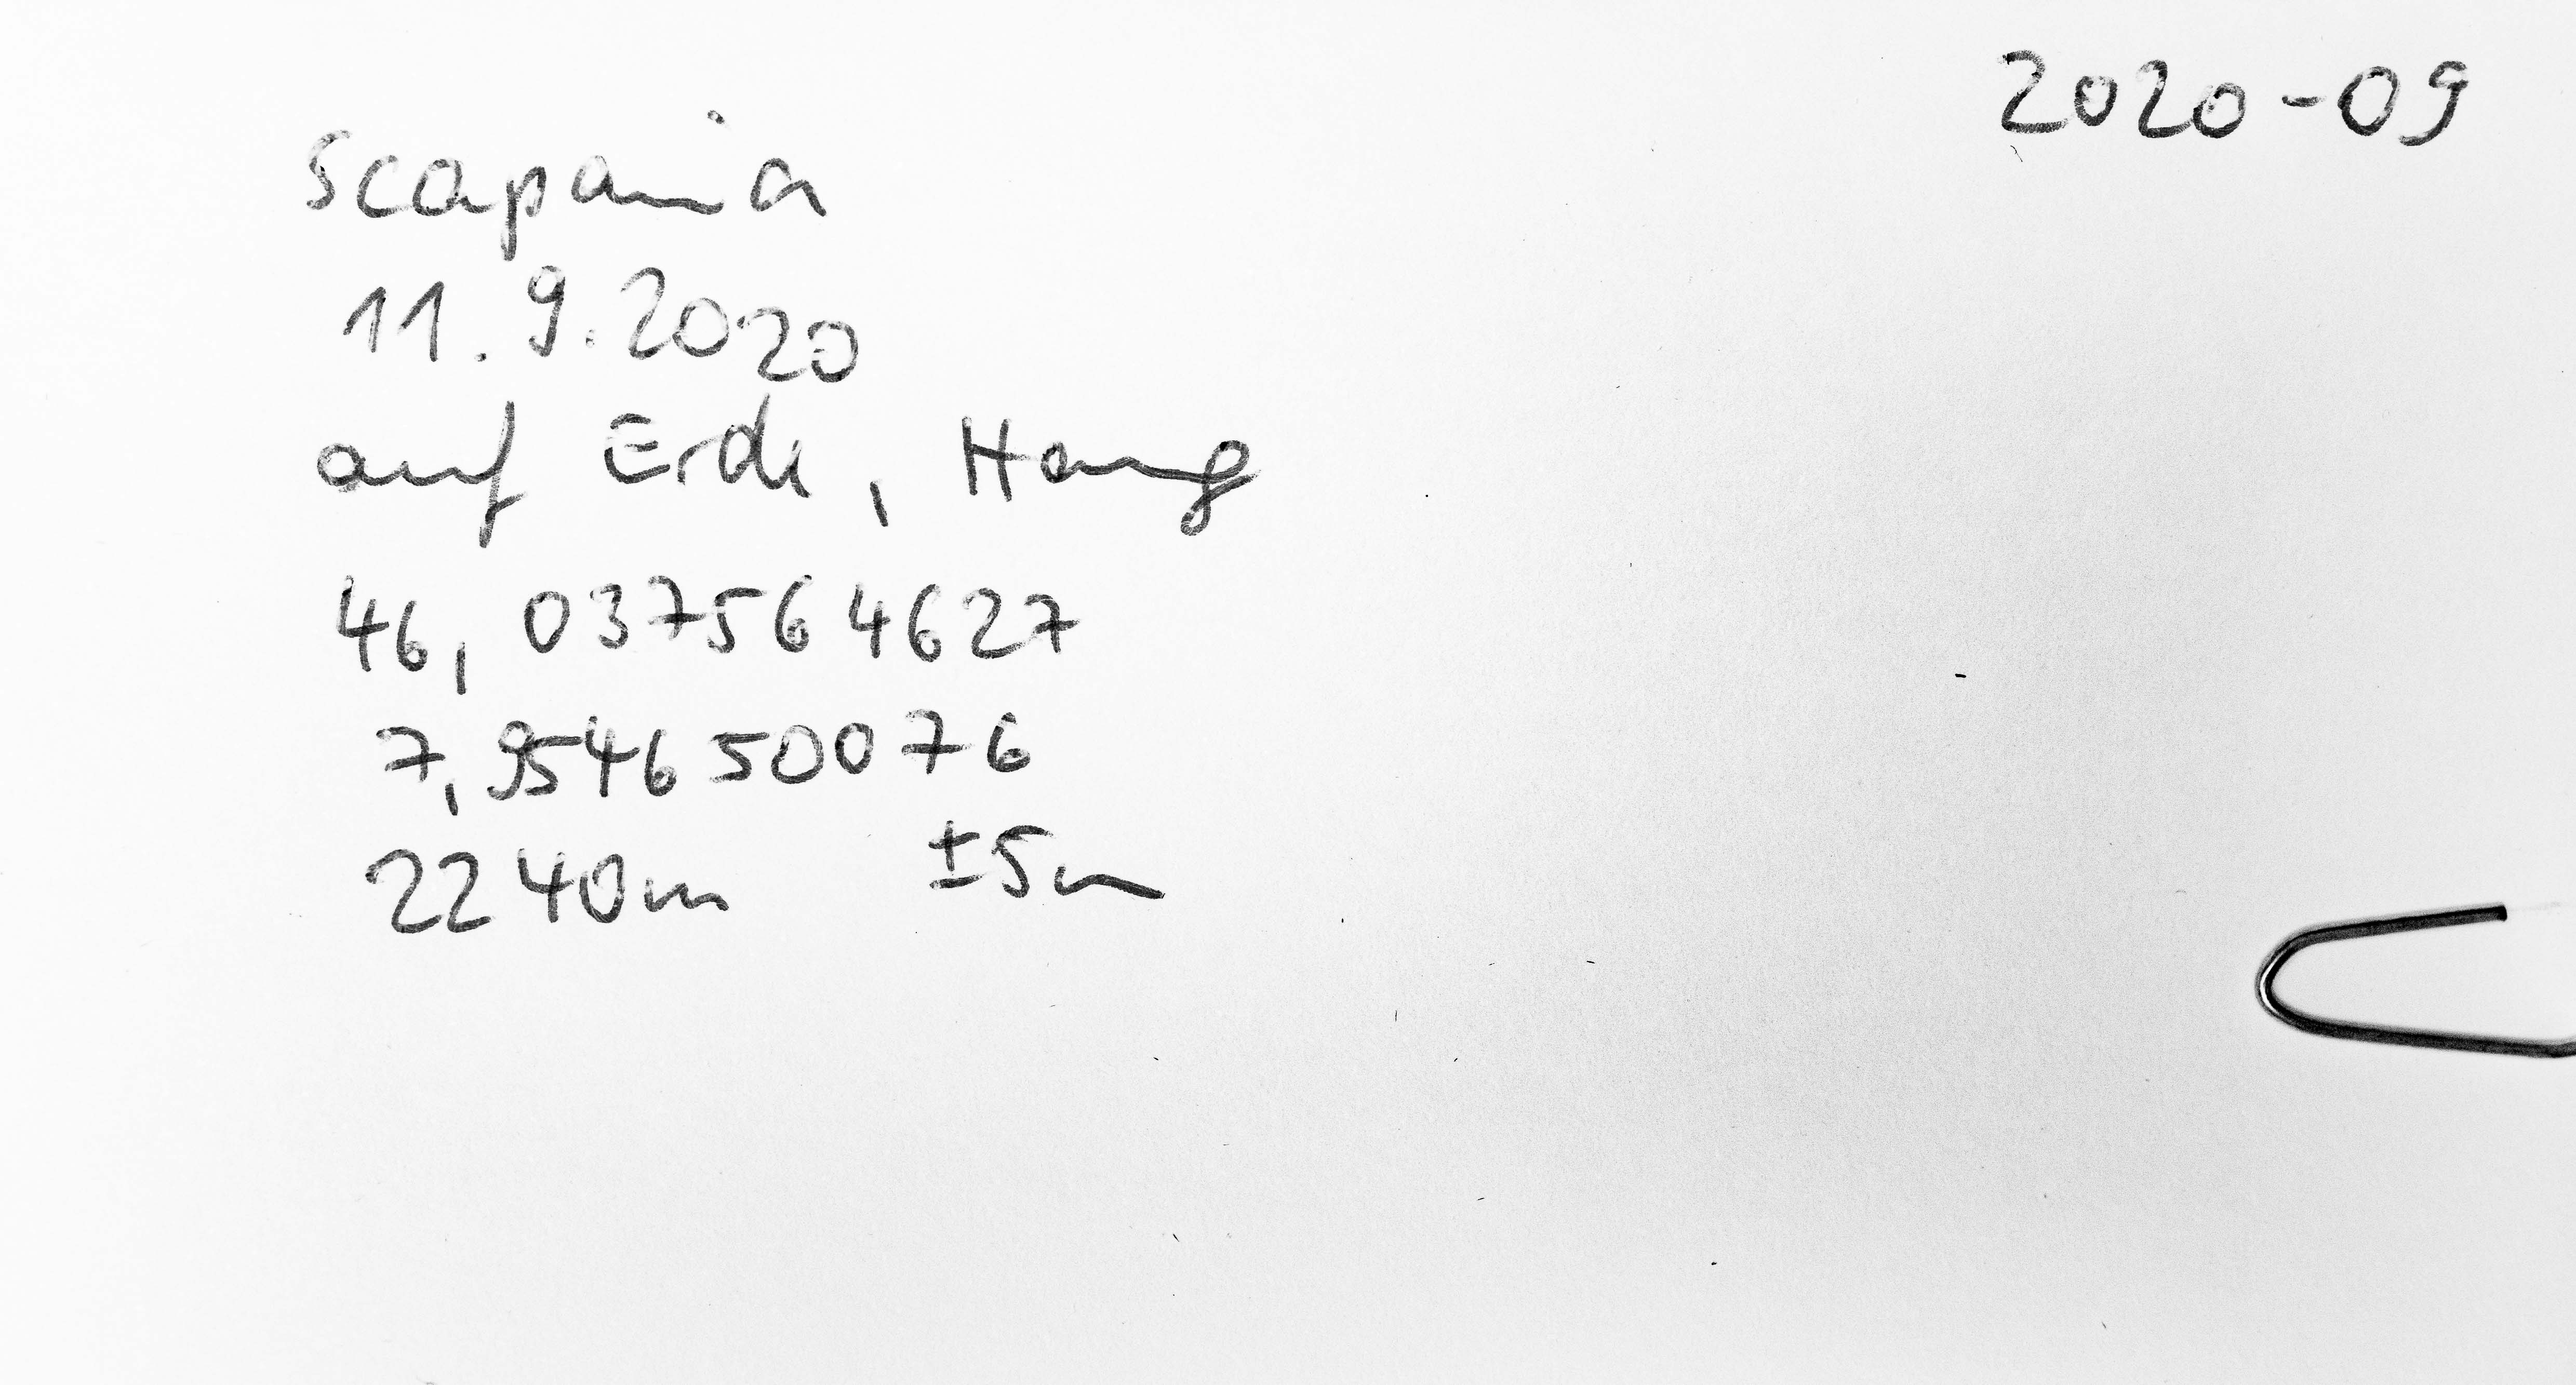 2020-09
Scapania
11.9.2020
auf Erde, Hang
46,037564627
7,954650076
2240m ±5m